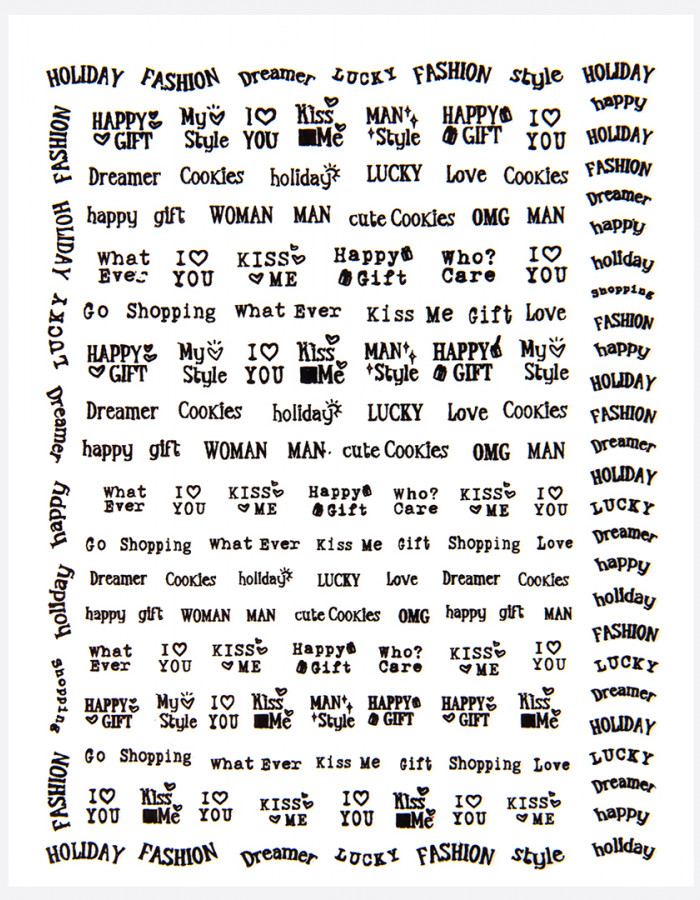 HOLIDAY FASHION Dreamer LUCKY FASHION style HOLIDAY
HAPPY My I MAN HAPPY I
GIFT Style YOU Kiss Me Style GIFT YOU
Dreamer Cookies holiday LUCKY Love Cookies
happy gift WOMAN MAN cute Cookies OMG MAN
What I KISS Happy Who? I
Ever YOU ME Gift Care YOU
Go Shopping What Ever Kiss Me Gift Love
HAPPY My I Kiss MAN HAPPY My
GIFT Style YOU Me Style GIFT Style
Dreamer Cookies holiday LUCKY Love Cookies
happy gift WOMAN MAN cute Cookies OMG MAN
What I KISS Happy Who? KISS I
Ever YOU ME Gift Care ME YOU
Go Shopping What Ever Kiss Me Gift Shopping Love
Dreamer Cookies holiday LUCKY Love Dreamer Cookies
happy gift WOMAN MAN cute Cookies OMG happy gift MAN
What I KISS Happy Who? KISS I
Ever YOU ME Gift Care ME YOU
HAPPY My I Kiss MAN HAPPY HAPPY Kiss
GIFT Style YOU Me Style GIFT GIFT Me
Go Shopping What Ever Kiss Me Gift Shopping Love
I Kiss I KISS I Kiss I KISS
YOU Me YOU ME YOU Me YOU ME
HOLIDAY FASHION Dreamer LUCKY FASHION style
FASHION
HOLIDAY
LUCKY
Dreamer
happy
holiday
shopping
FASHION
happy
HOLIDAY
FASHION
Dreamer
happy
holiday
shopping
FASHION
happy
HOLIDAY
FASHION
Dreamer
HOLIDAY
LUCKY
Dreamer
happy
holiday
FASHION
LUCKY
Dreamer
HOLIDAY
LUCKY
Dreamer
happy
holiday